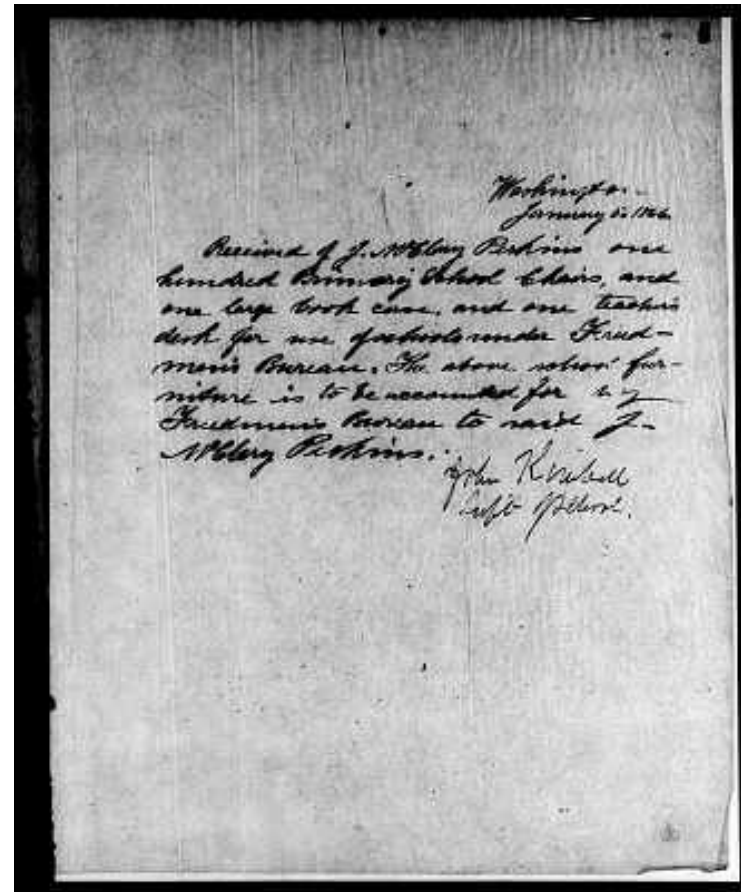 Washington
January 5. 1866
Received of J. McClery Perkins one
hundred Primary School Chairs, and
one large book case, and one teachers
desk for use of schools under Freed-
men's Bureau. The above school fur-
niture is to be accounted for by
Freedmen's Bureau to said J.
McClery Perkins.
John Kimball
Supt Schools.